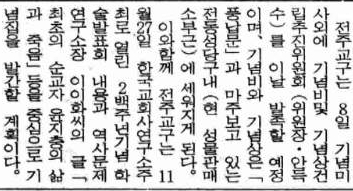 전주교구는 8일 기념미
사외에 기념비및 기념상건
립추진위원회(위원장·안득
수)를 이날 발족할 예정
이며, 기념비와 기념상은「
풍남문」과 마주보고 있는
전동성당구내(현 성물판매
소부근)에 세워지게 된다.
이와함께 전주교구는 11
월27일 한국교회사연구소주
최로 열린 2백주년기념 학
술발표회 내용과 역사문제
연구소장 이이화씨의 글「
최초의 순교자 윤지충의 삶
과 죽음」등을 중심으로 기
념집을 발간할 계획이다.